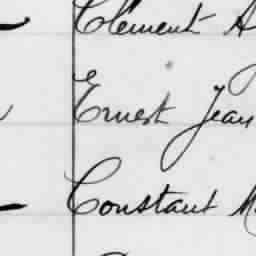 Clément A
Ernest Jean
Constant M